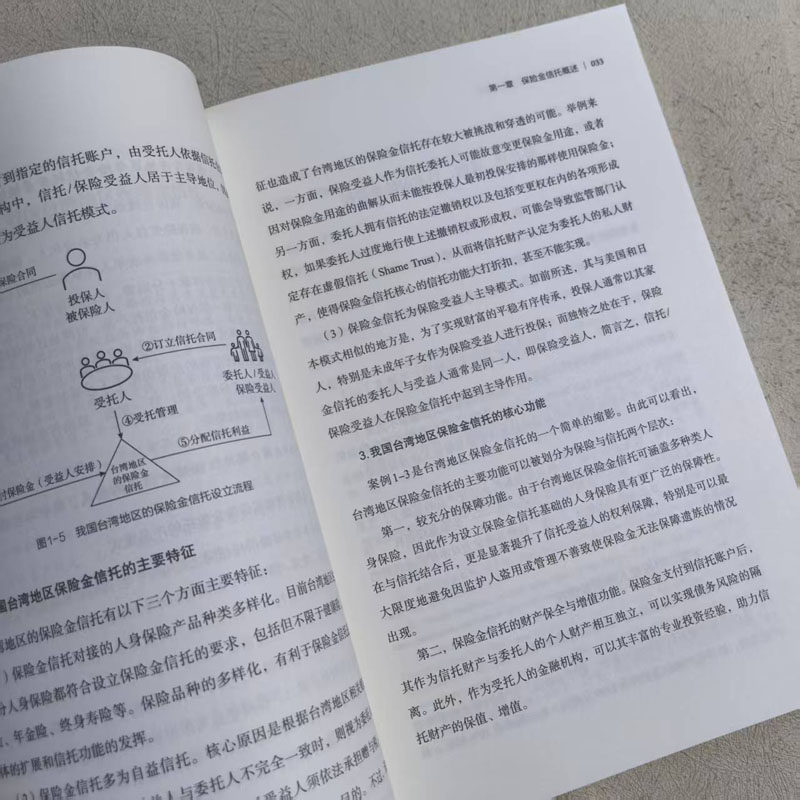 到指定的信托账户，由受托人依据信托
构中，信托/保险受益人居于主导地位，
为受益人信托模式。
保险合同
投保人
被保险人
②订立信托合同
受托人
委托人/受益人
保险受益人
④受托管理
⑤分配信托利益
付保险金（受益人安排）
台湾地区
的保险金
信托
图1-5 我国台湾地区的保险金信托设立流程
国台湾地区保险金信托的主要特征
湾地区的保险金信托有以下三个方面主要特征：
）保险金信托对接的人身保险产品种类多样化。目前台湾地区
分人身保险都符合设立保险金信托的要求，包括但不限于健康
、年金险、终身寿险等。保险品种的多样化，有利于保险金信托
体的扩展和信托功能的发挥。
（2）保险金信托多为自益信托。核心原因是根据台湾地区
益人与委托人不完全一致时，则视为委
受益人须依法承担赠与
目的。不
第一章 保险金信托概述 | 033
征也造成了台湾地区的保险金信托存在较大被挑战和穿透的可能。举例来
说，一方面，保险受益人作为信托委托人可能故意变更保险金用途，或者
因对保险金用途的曲解从而未能按投保人最初投保安排的那样使用保险金；
另一方面，委托人拥有信托的法定撤销权以及包括变更权在内的各项形成
权，如果委托人过度地行使上述撤销权或形成权，可能会导致监管部门认
定存在虚假信托（Shame Trust），从而将信托财产认定为委托人的私人财
产，使得保险金信托核心的信托功能大打折扣，甚至不能实现。
（3）保险金信托为保险受益人主导模式。如前所述，其与美国和日
本模式相似的地方是，为了实现财富的平稳有序传承，投保人通常以其家
人，特别是未成年子女作为保险受益人进行投保；而独特之处在于，保险
金信托的委托人与受益人通常是同一人，即保险受益人，简言之，信托/
保险受益人在保险金信托中起到主导作用。
3.我国台湾地区保险金信托的核心功能
案例1-3是台湾地区保险金信托的一个简单的缩影。由此可以看出，
台湾地区保险金信托的主要功能可以被划分为保险与信托两个层次：
第一，较充分的保障功能。由于台湾地区保险金信托可涵盖多种类人
身保险，因此作为设立保险金信托基础的人身保险具有更广泛的保障性。
在与信托结合后，更是显著提升了信托受益人的权利保障，特别是可以最
大限度地避免因监护人盗用或管理不善致使保险金无法保障遗族的情况
出现。
第二，保险金信托的财产保全与增值功能。保险金支付到信托账户后，
其作为信托财产与委托人的个人财产相互独立，可以实现债务风险的隔
离。此外，作为受托人的金融机构，可以其丰富的专业投资经验，助力信
托财产的保值、增值。